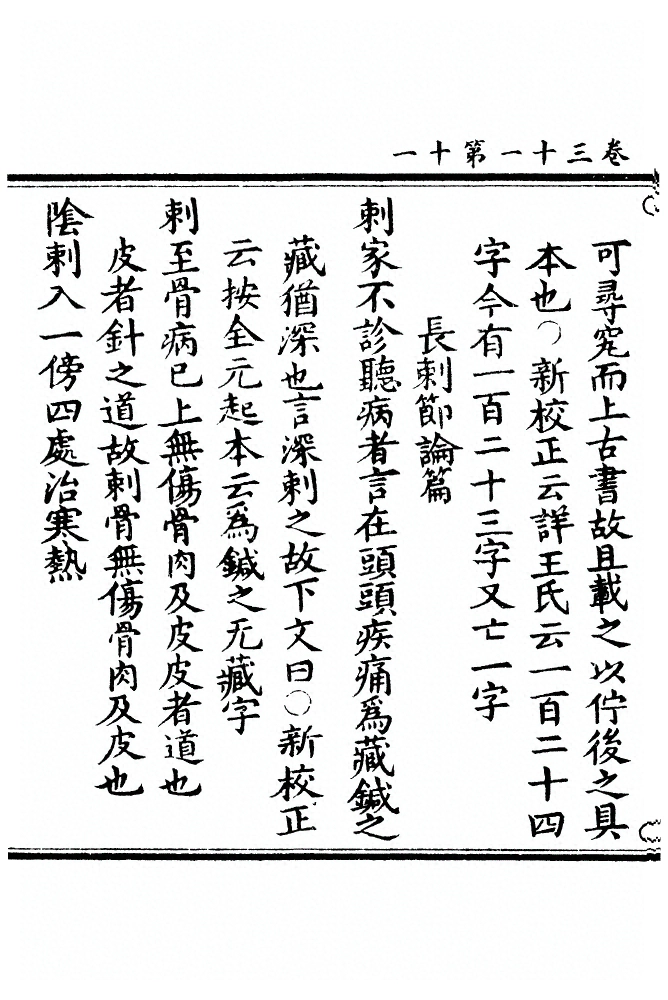 卷三十一第十一
可尋究而上古書故且載之以佇後之具
本也○新校正云詳王氏云一百二十四
字今有一百二十三字又亡一字
長刺節論篇
刺家不診聽病者言在頭頭疾痛爲藏鍼之
藏猶深也言深刺之故下文曰○新校正
云按全元起本云爲鍼之无藏字
刺至骨病已上無傷骨肉及皮皮者道也
皮者針之道故刺骨無傷骨肉及皮也
陰刺入一傍四處治寒熱